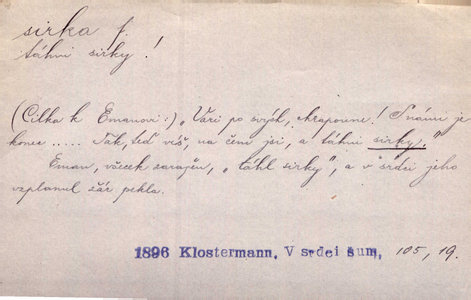 sirka f.
táhni sirky!
(Cilka k Emanovi:) „Vari po svých, chrapoune! S námi je
konec ..... Tak, teď víš, na čem jsi, a táhni sirky."
Eman, všecek zaražen, „táhl sirky", a v srdci jeho
vzplanul žár pekla.
1896 Klostermann, V srdci šum, 105, 19.